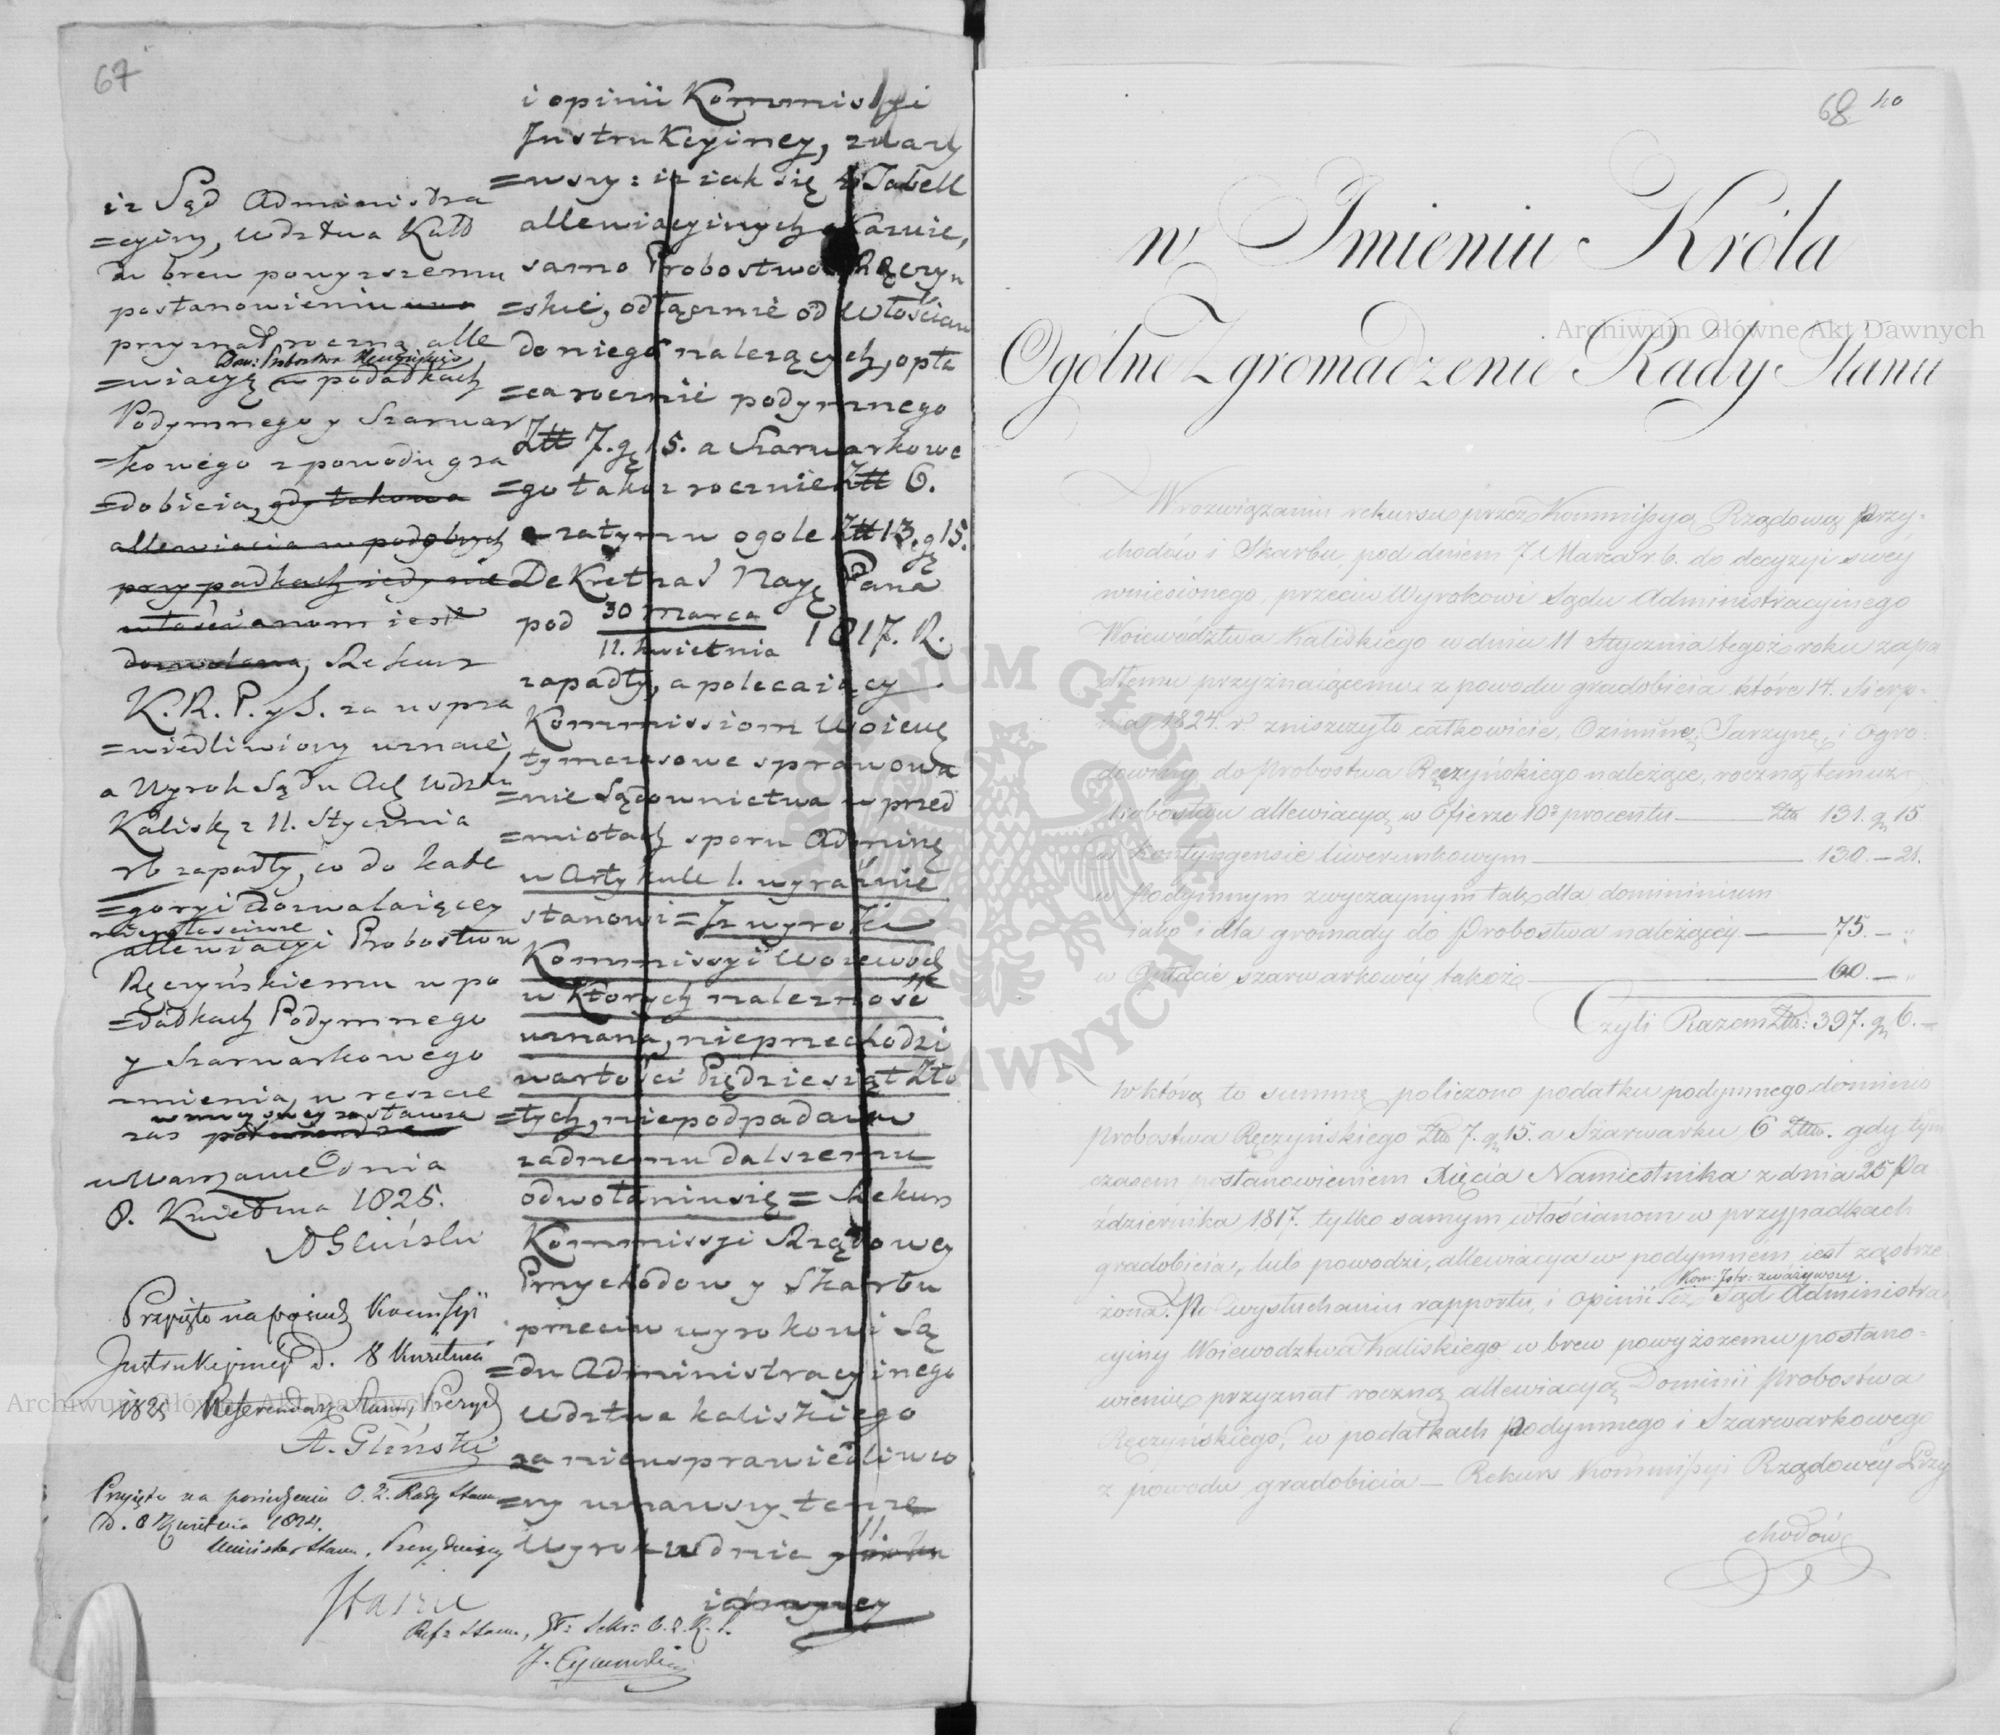 67
iż Sąd Administra
=cyiny, Wdztwa Kali
w brew powyższemu
postanowieniu
przyznał roczną alle
Dom: Probostwa Ręczyńskiego
=wiacyę w podadkach
Podymnego y Szarwar
=kowego z powodu gra
=dobicia, gdy takowa
allewiacia w podobnych
przypadkach iedynie
włościanom iest
dozwolona, Rekurs
K. R. P. y S. za uspra
=wiedliwiony uznaie,
a Wyrok Sądu Adę Wdztw
Kaliskę z 11. Stycznia
rb zapadły, co do kate
=goryi dozwalaiącey
niewłaściwie
allewiacyi Probostwu
Ręczyńskiemu w po
=dadkach Podymnego
y Szarwarkowego
zmienia, w reszcie
w mocy swey zostawia
zaś
w Warszawie dnia
8. Kwietnia 1825.
AGliński
Przyięto na posiedz Kommissyi
Instrukcyiney d. 8 Kwietnia
1825 Referendarz Stanu, Prezyd
A. Gliński
Przyięto na posiedzeniu O. Z. Rady Stanu
D. 8 Kwietnia 1824.
Minister Stanu, Prezyduiący
Ref: Stanu, Sekr: O. Z. R. S.
i opinii Kommissyi
Instrukcyiney, zważy
=wszy: iż iak się z Tabell
allewiacyinych okazuie,
samo Probostwo Ręczyń
=skie, odłącznie od włościan
do niego należących, opła
=ca rocznie podymnego
Złł 7. gę 15. a Szarwarkowe
=go takoż rocznie Złł 6.
a zatym w ogole Złł 13. gę 15.
Dekret zaś Nayę Pana
pod 30 Marca
11. Kwietnia 1817. R.
zapadły, a polecaiący
Kommissiom Woiewę
tymczasowe sprawowa
=nie Sądownictwa w przed
=miotach sporu Adminę
w Artykule 1. wyraźnie
stanowi = Iż wyroki
Kommissyi Woiewodz
w których należność
uznana, nieprzechodzi
wartości Piędziesiąt Zło
=tych, niepodpadaią
żadnemu dalszemu
odwołaniu się = Rekurs
Kommissyi Rządowey
Przychodow y Skarbu
przeciw wyrokowi Są
=du Administracyinego
Wdztwa kaliskiego
za nieusprawiedliwio
=ny uznawszy, tenże
Wyrok w dnia 11.
68 40
w Imieniu Króla
Ogólne Zgromadzenie Rady Stanu
W rozwiązaniu rekursu przez Kommissyą Rządową Przy-
chodów i Skarbu, pod dniem 7 Marca r. b. do decyzyi swey
wniesionego, przeciw Wyrokowi Sądu Administracyinego
Woiewództwa Kaliskiego w dniu 11 Stycznia tegoż roku zapa
dłemu przyznaiącemu z powodu gradobicia które 14. Sierp-
nia 1824. r. zniszczyło całkowicie, Oziminę, Jarzynę, i Ogro-
dowiny, do Probostwa Ręczyńskiego należące, roczną temuż
Probostwu allewiacyą w Ofierze 10º procentu — Złł: 131. gę 15
w Kontyngensie liwerunkowym — 130. — 21.
w Podymnym zwyczaynym tak dla dominium
iako i dla gromady do Probostwa należącéy — 75. — „
w Opłacie szarwarkowéy takoż — 60. — „
Czyli Razem Złł: 397. gę 6. —
W którą to summę policzono podatku podymnego dominio
Probostwa Ręczyńskiego Złł 7. gę 15. a Szarwarku 6 Złł. gdy tym
czasem postanowieniem Xięcia Namiestnika z dnia 25 Pa
ździernika 1817. tylko samym włościanom w przypadkach
gradobicia, lub powodzi, allewiacya w podymném iest zastrze
Kom: Jstr: zważywszy
żona. Po wysłuchaniu rapportu, i opinii iż Sąd Administra
cyiny Woiewodztwa Kaliskiego w brew powyższemu postano-
wieniu przyznał roczną allewiacyą Dominii Probostwa
Ręczyńskiego, w podatkach podymnego i Szarwarkowego
z powodu gradobicia — Rekurs Kommissyi Rządowéy Przy
chodów
Archiwum Główne Akt Dawnych
Archiwum Główne Akt Dawnych
ARCHIWUM GŁÓWNE AKT DAWNYCH